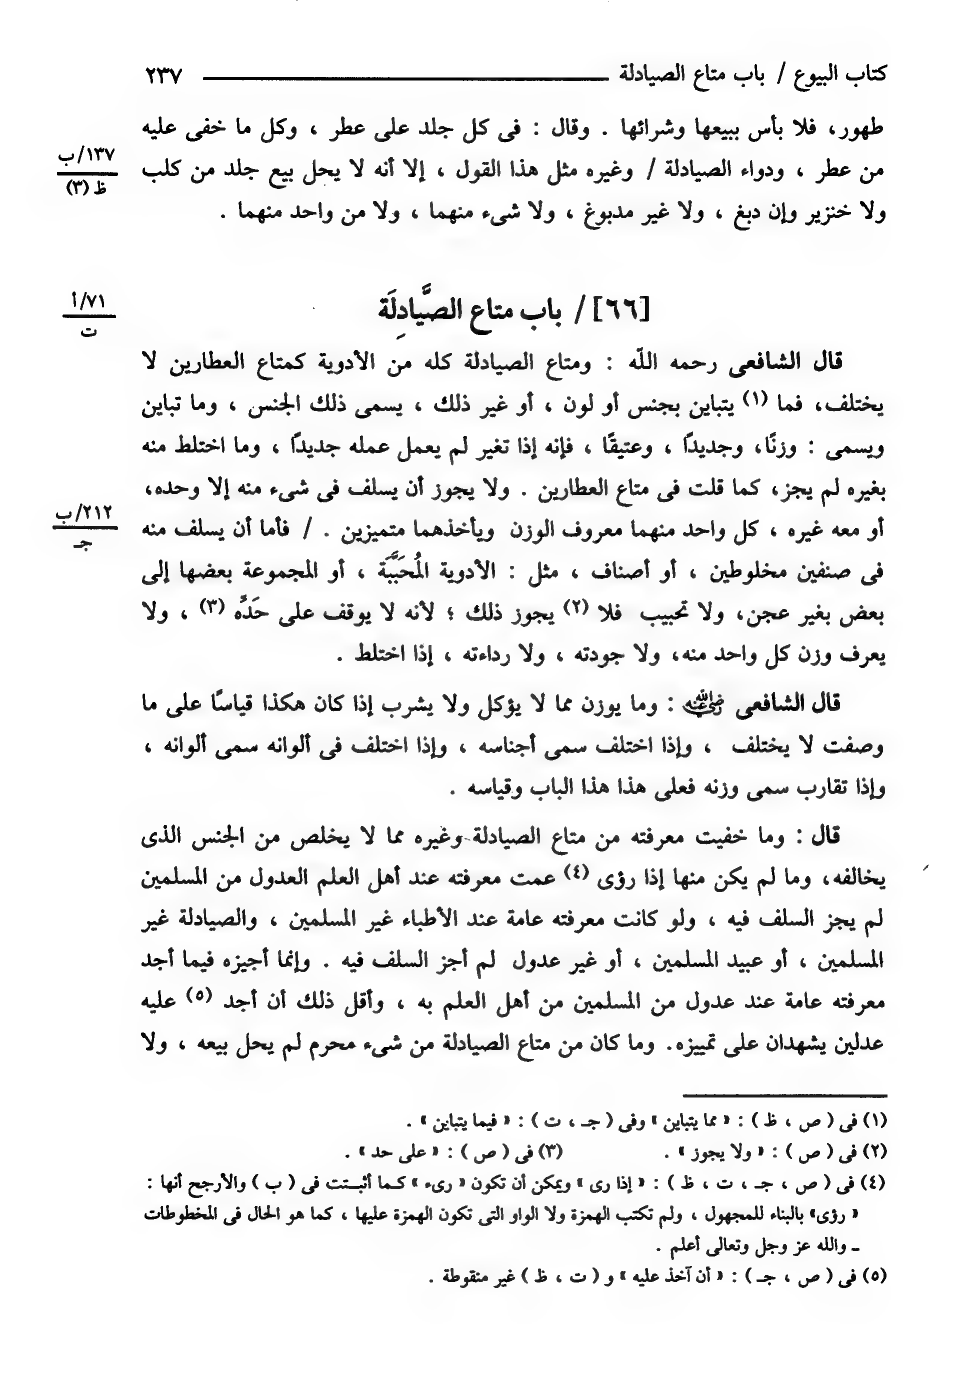 كتاب البيوع / باب متاع الصيادلة ٢٣٧
طهور، فلا بأس ببيعها وشرائها . وقال : فى كل جلد على عطر ، وكل ما خفى عليه
من عطر ، ودواء الصيادلة / وغيره مثل هذا القول ، إلا أنه لا يحل بيع جلد من كلب
١٣٧/ب
ظ (٣)
ولا خنزير وإن دبغ ، ولا غير مدبوغ ، ولا شىء منهما ، ولا من واحد منهما .
[٦٦] / باب متاع الصَّيادِلَة
٧١/أ
ت
قال الشافعى رحمه اللّه : ومتاع الصيادلة كله من الأدوية كمتاع العطارين لا
يختلف، فما (١) يتباين بجنس أو لون ، أو غير ذلك ، يسمى ذلك الجنس ، وما تباين
ويسمى : وزنًا، وجديدًا ، وعتيقًا ، فإنه إذا تغير لم يعمل عمله جديدًا ، وما اختلط منه
بغيره لم يجز، كما قلت فى متاع العطارين . ولا يجوز أن يسلف فى شىء منه إلا وحده،
أو معه غيره ، كل واحد منهما معروف الوزن ويأخذهما متميزين . / فأما أن يسلف منه
٢١٢/ب
جـ
فى صنفين مخلوطين ، أو أصناف ، مثل : الأدوية المُحَبَّبَة ، أو المجموعة بعضها إلى
بعض بغير عجن، ولا تحبيب فلا (٢) يجوز ذلك ؛ لأنه لا يوقف على حَدِّه (٣) ، ولا
يعرف وزن كل واحد منه، ولا جودته ، ولا رداءته ، إذا اختلط .
قال الشافعى رضي الله عنه : وما يوزن مما لا يؤكل ولا يشرب إذا كان هكذا قياسًا على ما
وصفت لا يختلف ، وإذا اختلف سمى أجناسه ، وإذا اختلف فى ألوانه سمى ألوانه ،
وإذا تقارب سمى وزنه فعلى هذا هذا الباب وقياسه .
قال : وما خفيت معرفته من متاع الصيادلة وغيره مما لا يخلص من الجنس الذى
يخالفه، وما لم يكن منها إذا رؤى (٤) عمت معرفته عند أهل العلم العدول من المسلمين
لم يجز السلف فيه ، ولو كانت معرفته عامة عند الأطباء غير المسلمين ، والصيادلة غير
المسلمين ، أو عبيد المسلمين ، أو غير عدول لم أجز السلف فيه . وإنما أجيزه فيما أجد
معرفته عامة عند عدول من المسلمين من أهل العلم به ، وأقل ذلك أن أجد (٥) عليه
عدلين يشهدان على تمييزه. وما كان من متاع الصيادلة من شىء محرم لم يحل بيعه ، ولا
(١) فى ( ص ، ظ ) : « مما يتباين » وفى ( جـ ، ت ) : « فيما يتباين » .
(٢) فى ( ص ) : « ولا يجوز » . (٣) فى ( ص ) : « على حد » .
(٤) فى ( ص ، جـ ، ت ، ظ ) : « إذا رى » ويمكن أن تكون « رىء » كـما أثبـتت فى ( ب ) والأرجح أنها :
« رؤى» بالبناء للمجهول ، ولم تكتب الهمزة ولا الواو التى تكون الهمزة عليها ، كما هو الحال فى المخطوطات
ـ والله عز وجل وتعالى أعلم .
(٥) فى ( ص ، جـ ) : « أن آخذ عليه » و ( ت ، ظ ) غير منقوطة .